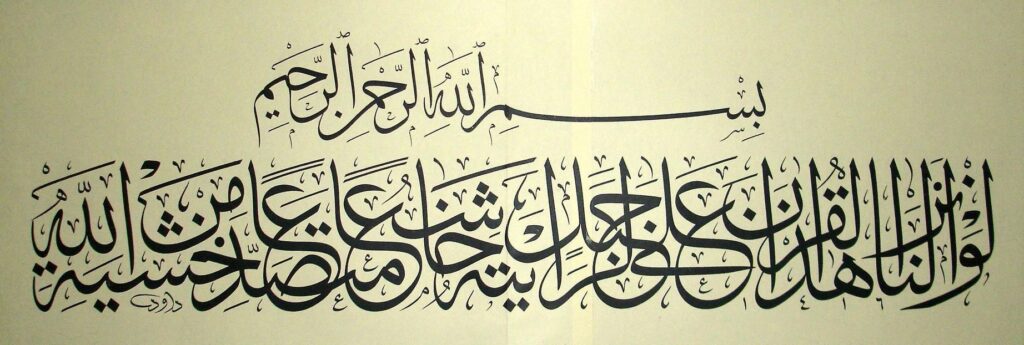 بِسْمِ اللَّهِ الرَّحْمٰنِ الرَّحِيمِ
لَوْ أَنْزَلْنَا هٰذَا الْقُرْآنَ عَلَىٰ جَبَلٍ لَرَأَيْتَهُ خَاشِعًا مُتَصَدِّعًا مِنْ خَشْيَةِ اللَّهِ